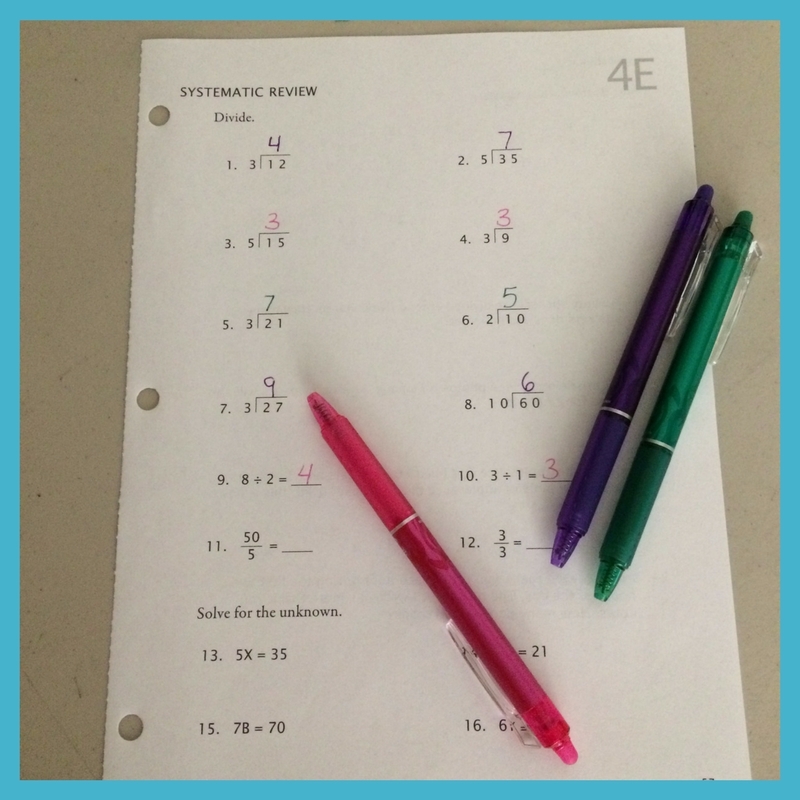 4E
SYSTEMATIC REVIEW
Divide.
4
1. 3⟌12
7
2. 5⟌35
3
3. 5⟌15
3
4. 3⟌9
7
5. 3⟌21
5
6. 2⟌10
9
7. 3⟌27
6
8. 10⟌60
9. 8 ÷ 2 = 4
10. 3 ÷ 1 = 3
11. 50/5 = ___
12. 3/3 = ___
Solve for the unknown.
13. 5X = 35
= 21
15. 7B = 70
16. 6